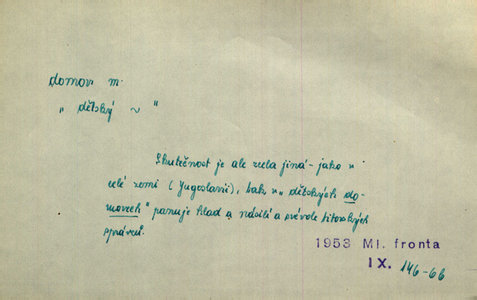 domov m.
„ dětský ~ "
Skutečnost je ale zcela jiná - jako v
celé zemi (Jugoslavii), tak v „dětských do-
movech" panuje hlad a násilí a zvůle titovských
správců.
1953 Ml. fronta
IX. 146-6b